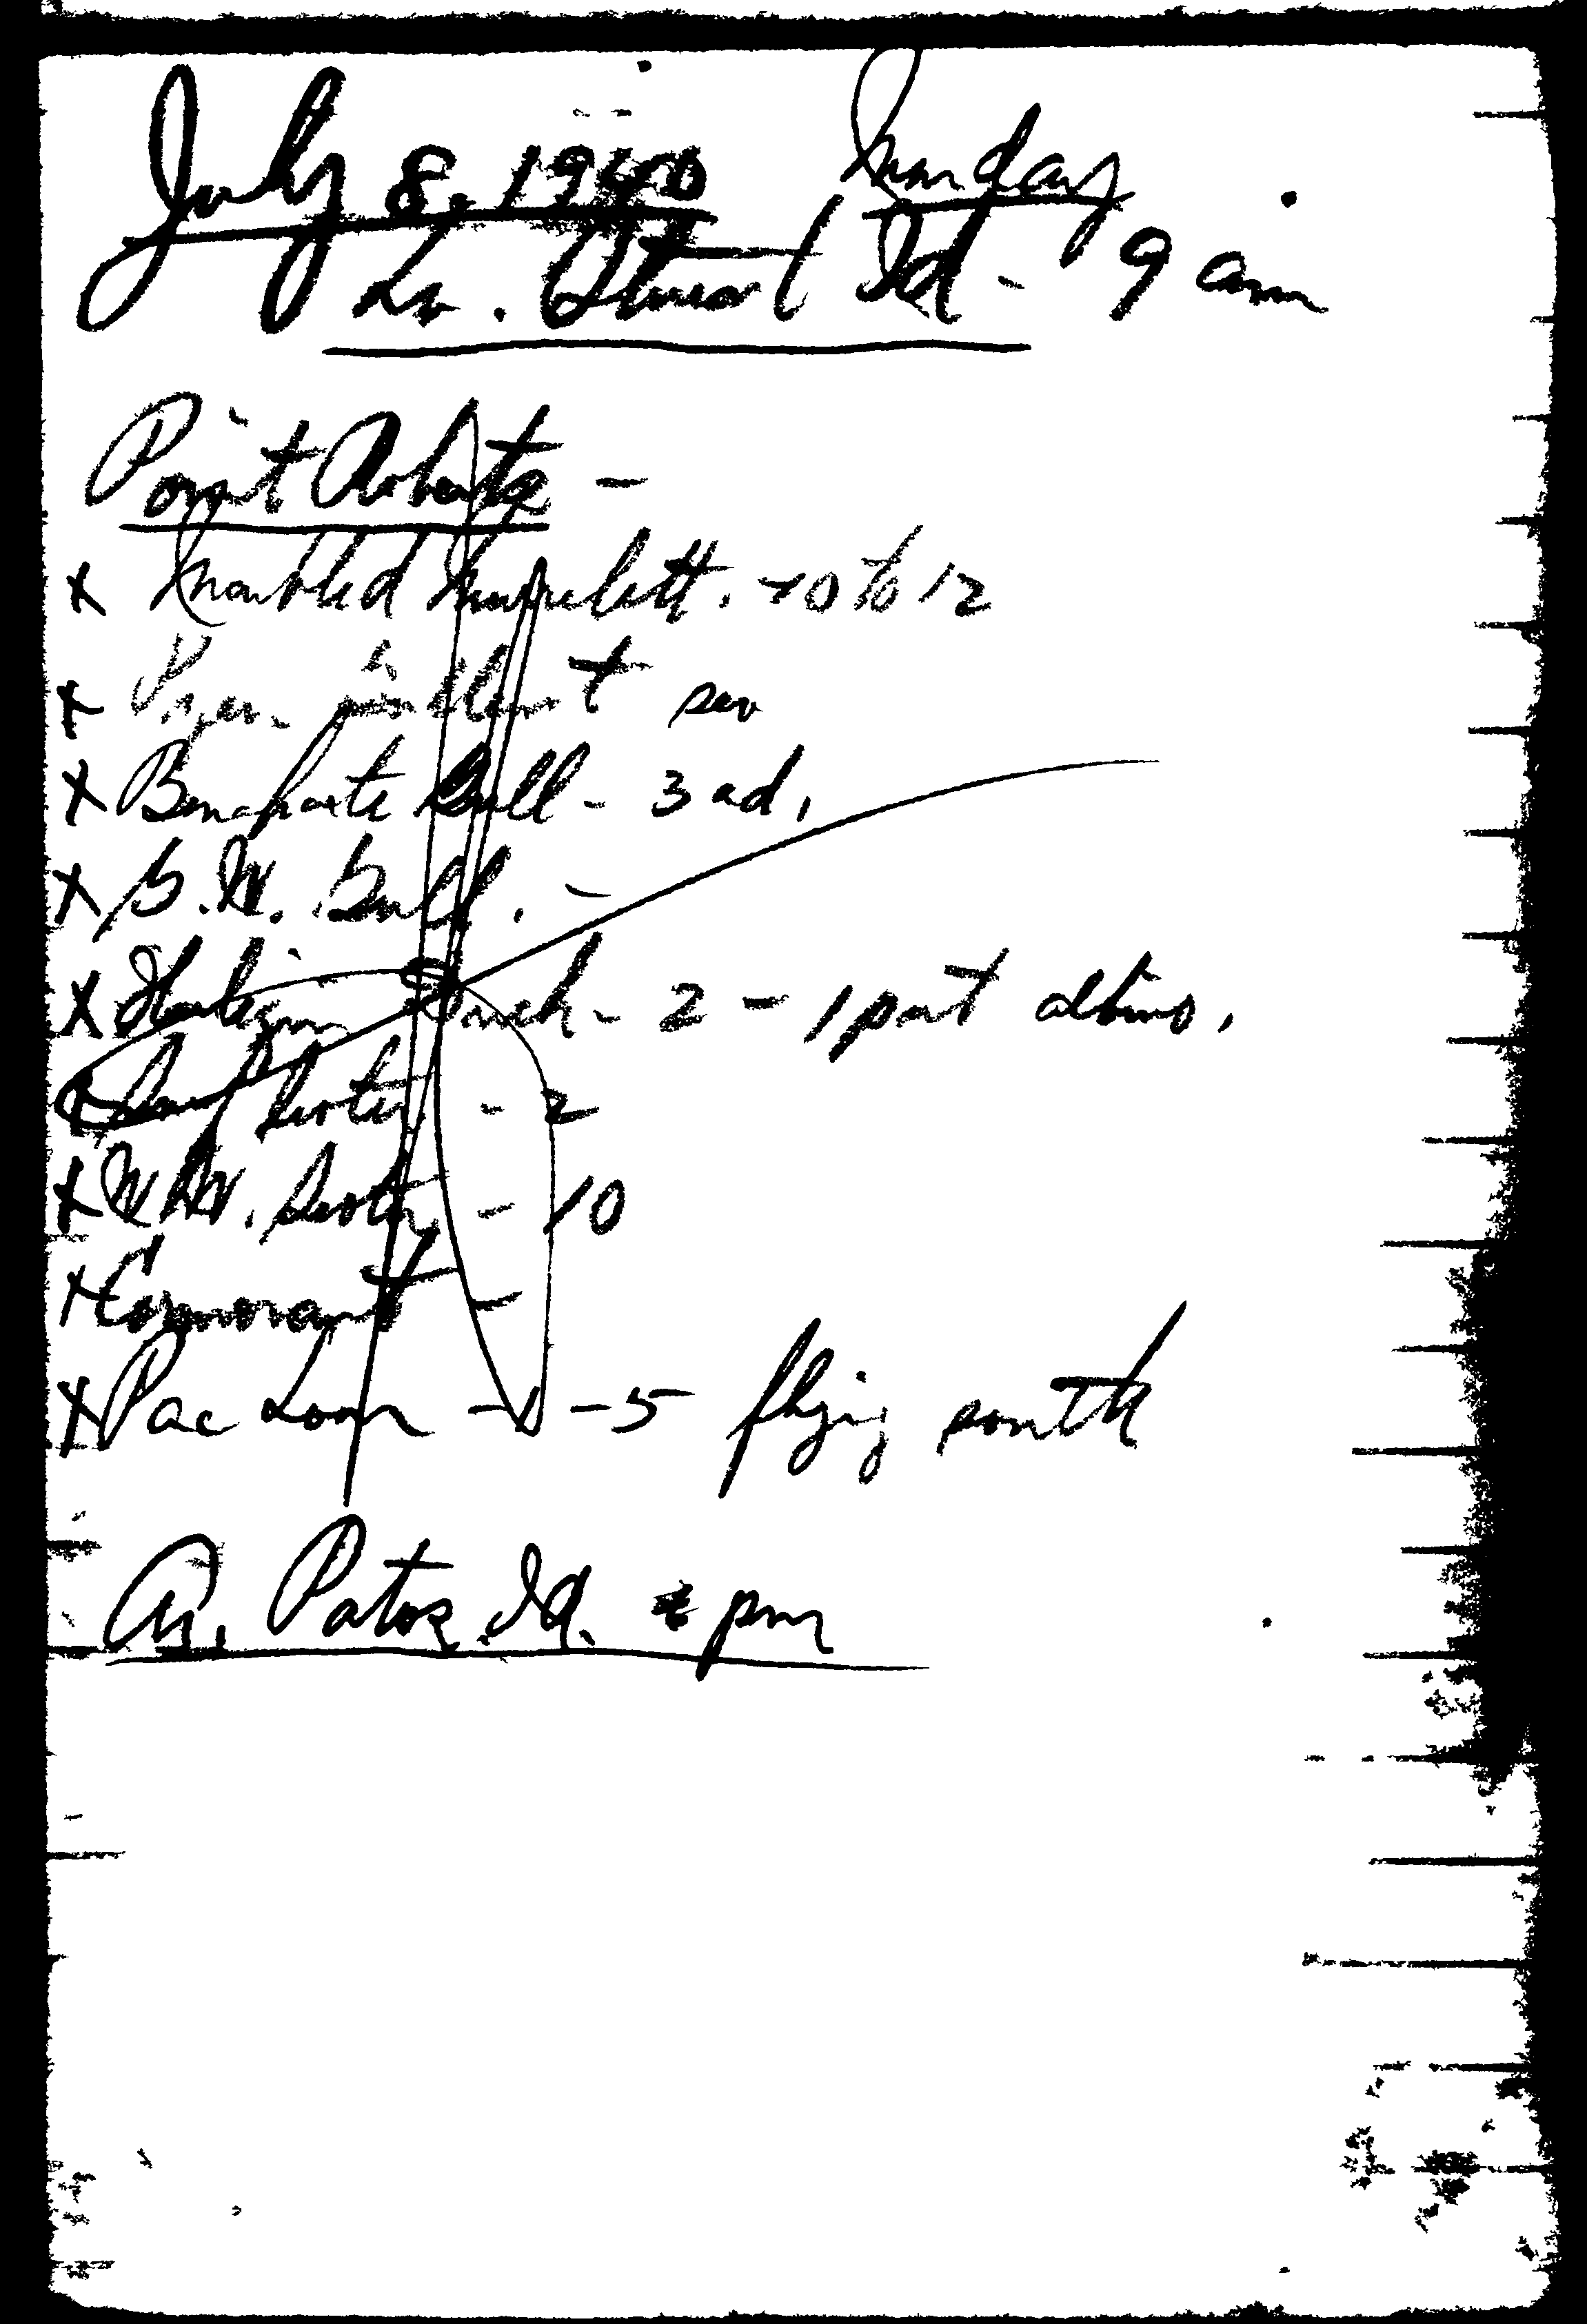 July 8, 1940 Monday
Lv. Stuart Id - 9 am
Point Roberts -
x Marbled Murrelett. 10 to 12
x Pigeon guillemot sev
x Bonaparte Gull - 3 ad.
x G.W. Gull. -
x Harlequin Duck - 2 - 1 part albino.
x Surf Scoter - 2
x W.W. Scoter - 10
x Cormorant -
x Pac Loon - - 5 flying south
Ar. Patos Id. pm